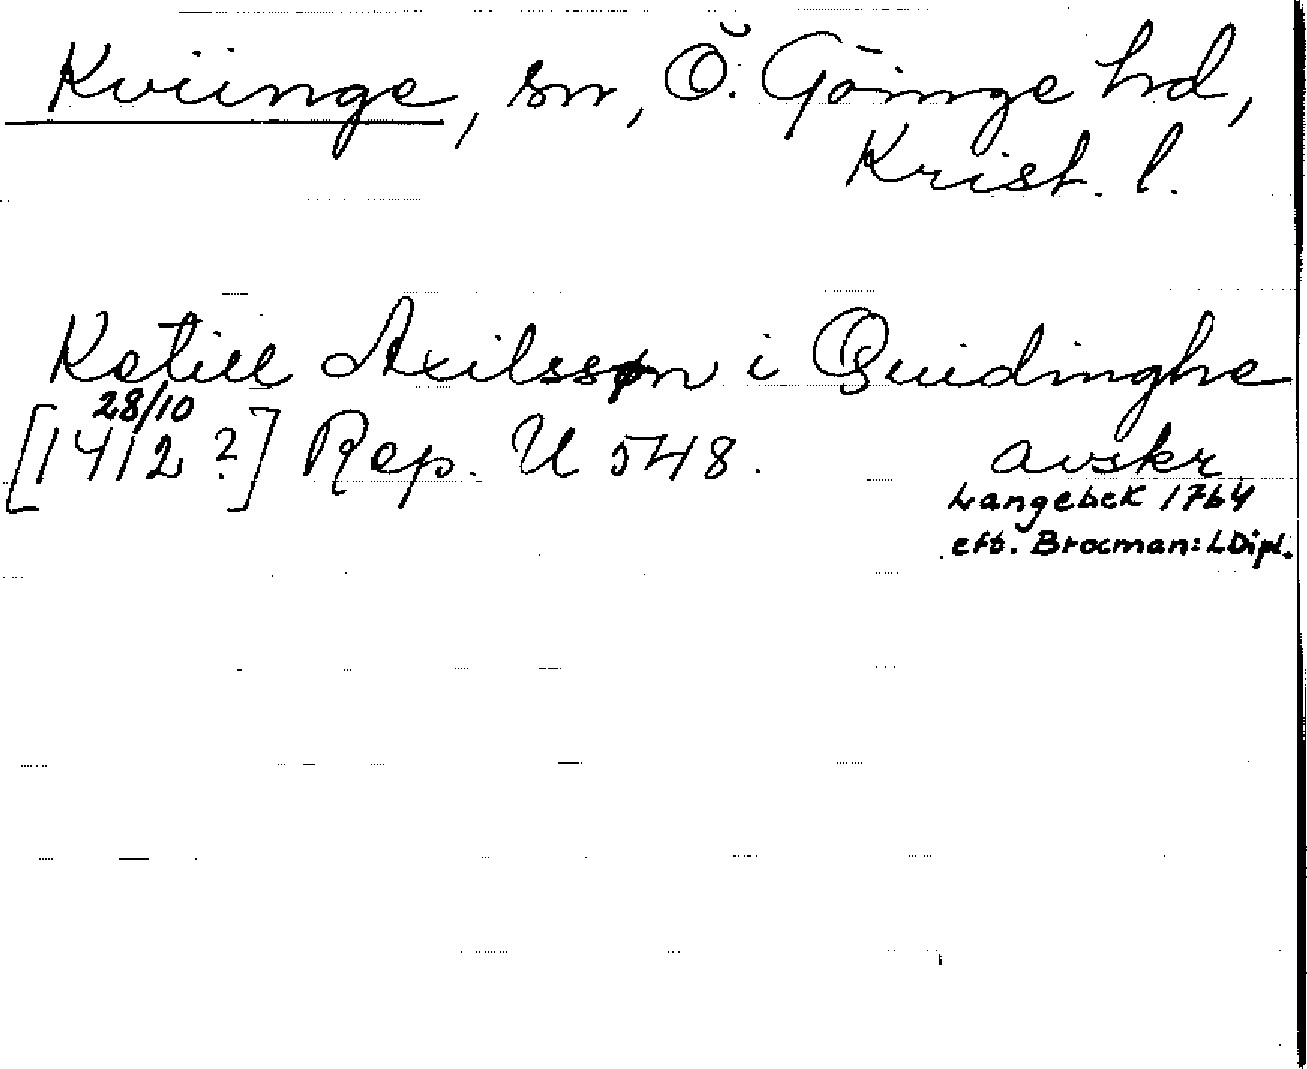 Kviinge, sn, Ö. Göinge hd,
Krist. l.
Ketill Axilssøn i Quidinghe
28/10
[1412?] Rep. U 548. avskr
Langebek 1764
eft. Brocman: LDipl.